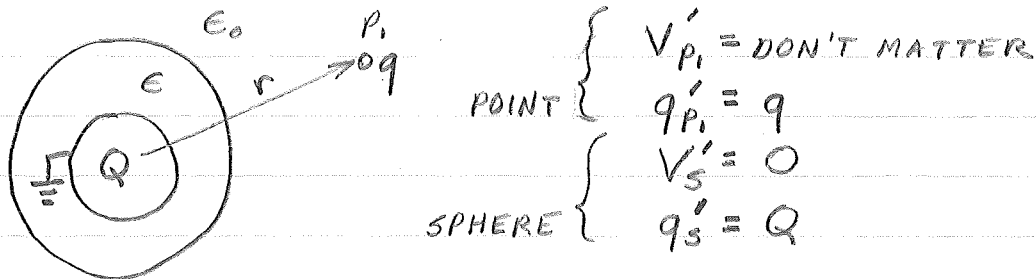 ϵ₀
P₁
q
ϵ
r
Q
POINT
V'ₚ₁ = DON'T MATTER
q'ₚ₁ = q
SPHERE
V'ₛ = O
q'ₛ = Q